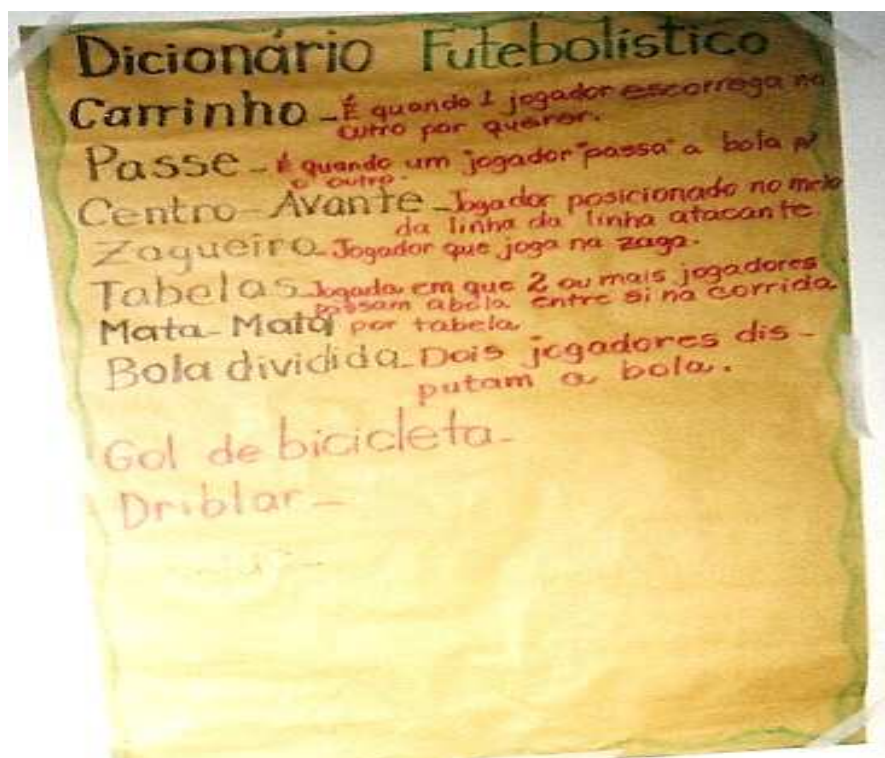 Dicionário Futebolístico
Carrinho - É quando 1 jogador escorrega no
outro por querer.
Passe - é quando um jogador "passa" a bola p/
o outro.
Centro-Avante - Jogador posicionado no meio
da linha da linha atacante.
Zagueiro - Jogador que joga na zaga.
Tabelas Jogada em que 2 ou mais jogadores
passam a bola entre si na corrida
Mata-Mata por tabela.
Bola dividida - Dois jogadores dis-
putam a bola.
Gol de bicicleta -
Driblar -